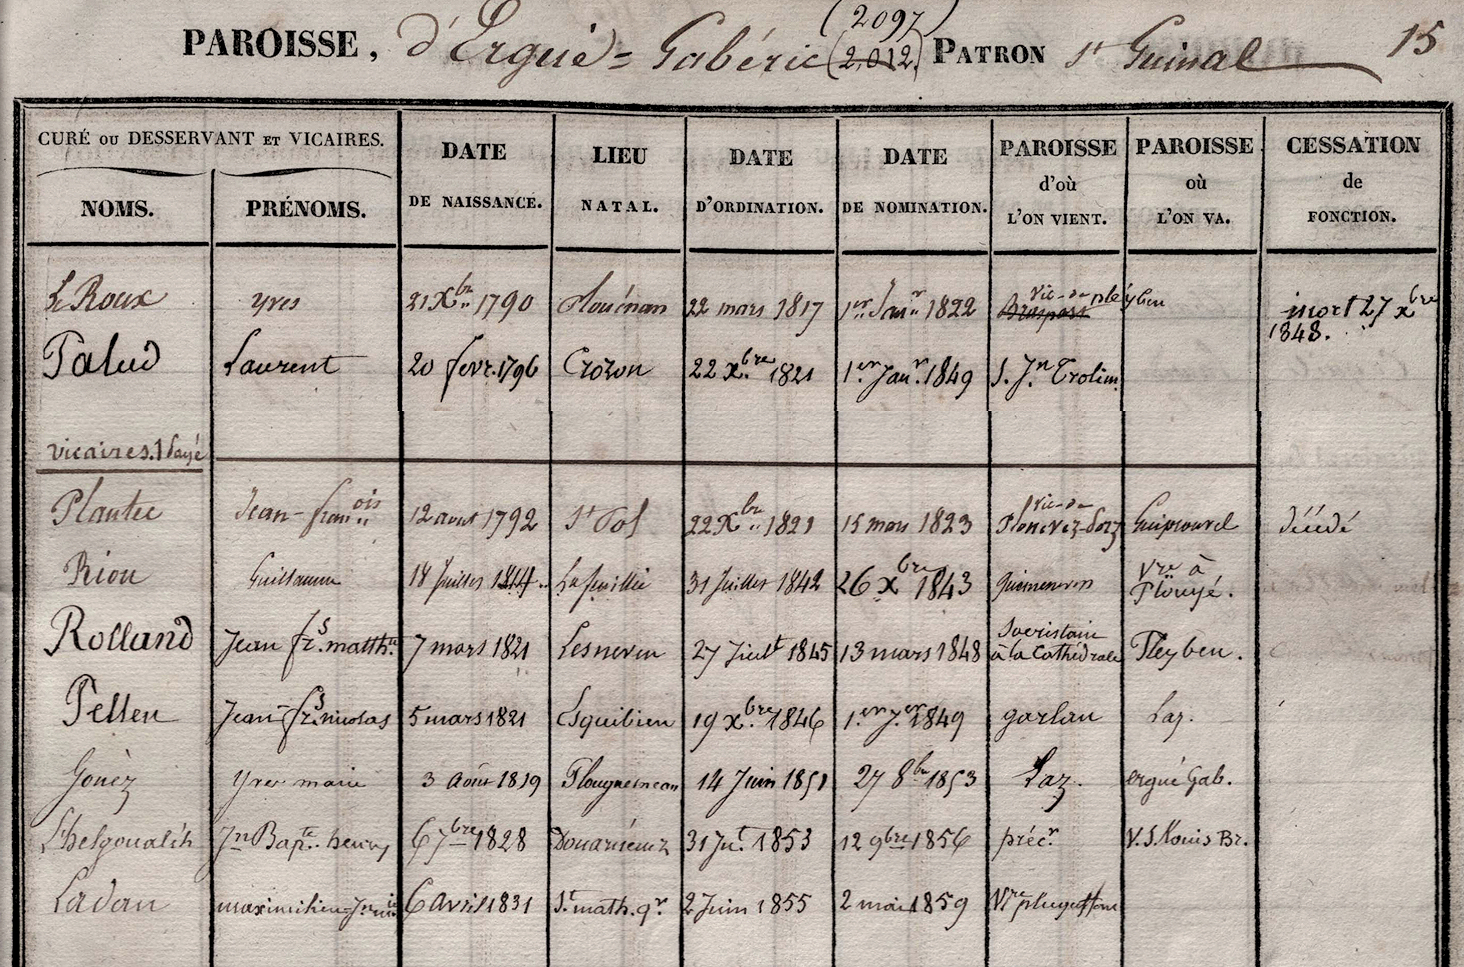 (2097)
PAROISSE, d'Ergué=Gabéric (2,012) PATRON St Guinal 15
CURÉ OU DESSERVANT ET VICAIRES.
NOMS. PRÉNOMS. DATE DE NAISSANCE. LIEU NATAL. DATE D'ORDINATION. DATE DE NOMINATION. PAROISSE d'où L'ON VIENT. PAROISSE où L'ON VA. CESSATION de FONCTION.
Le Roux Yves 21 Xbre 1790 Plouénan 22 mars 1817 1er Janr 1822 Braspars vic. de pleyben mort 27 xbre 1848.
Palud Laurent 20 fevr. 1796 Crozon 22 xbre 1821 1er Janr. 1849 S. Jn Trolim.
vicaires. 1 payé
Plantec Jean-françois 12 aout 1792 St Pol 22 Xbre 1821 15 mars 1823 vic. de Plonevez-porz Guipronvel décédé
Riou Guillaume 18 Juillet 1814 La feuillée 31 Juillet 1842 26 xbre 1843 guimenven vre à Plouyé.
Rolland Jean frs. matth. 7 mars 1821 Lesneven 27 Juilt 1845 13 mars 1848 Sacristain à la Cathédrale Pleyben.
Pellen Jean-frs. nicolas 5 mars 1821 Esquibien 19 xbre 1846 1er Jer 1849 garlan Laz.
Gouëz Yves marie 3 Août 1819 Plouguerneau 14 Juin 1851 27 8bre 1853 Laz. ergué Gab.
L'helgoualc'h Jn Bapte. henry 6 7bre 1828 Douarnenez 31 Jt. 1853 12 9bre 1856 précr V. S. Louis Br.
Ladan maximilien 6 Avril 1831 St. math. qr. 2 Juin 1855 2 mai 1859 Vre pluguffan